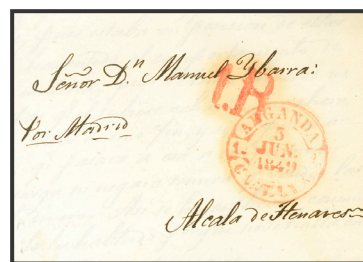 Señor Dn Manuel Ybarra:
1R
Por Madrid
ARGANDA
3
JUN.
1849
Alcala de Henares